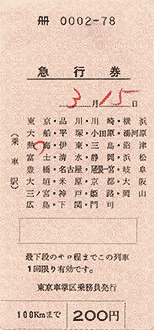 冊 0002-78
急行券
3月15日
(乗車駅)
東京・品川・川崎・横浜
大船・平塚・小田原・湯河原
熱海・伊東・三島・沼津
富士・清水・静岡・浜松
豊橋・名古屋・岐阜
大垣・米原・京都・大阪
三ノ宮・神戸・姫路・岡山
広島・下関・門司
最下段のヤロ程までこの列車
1回限り有効です。
東京車掌区乗務員発行
100Kmまで 200円